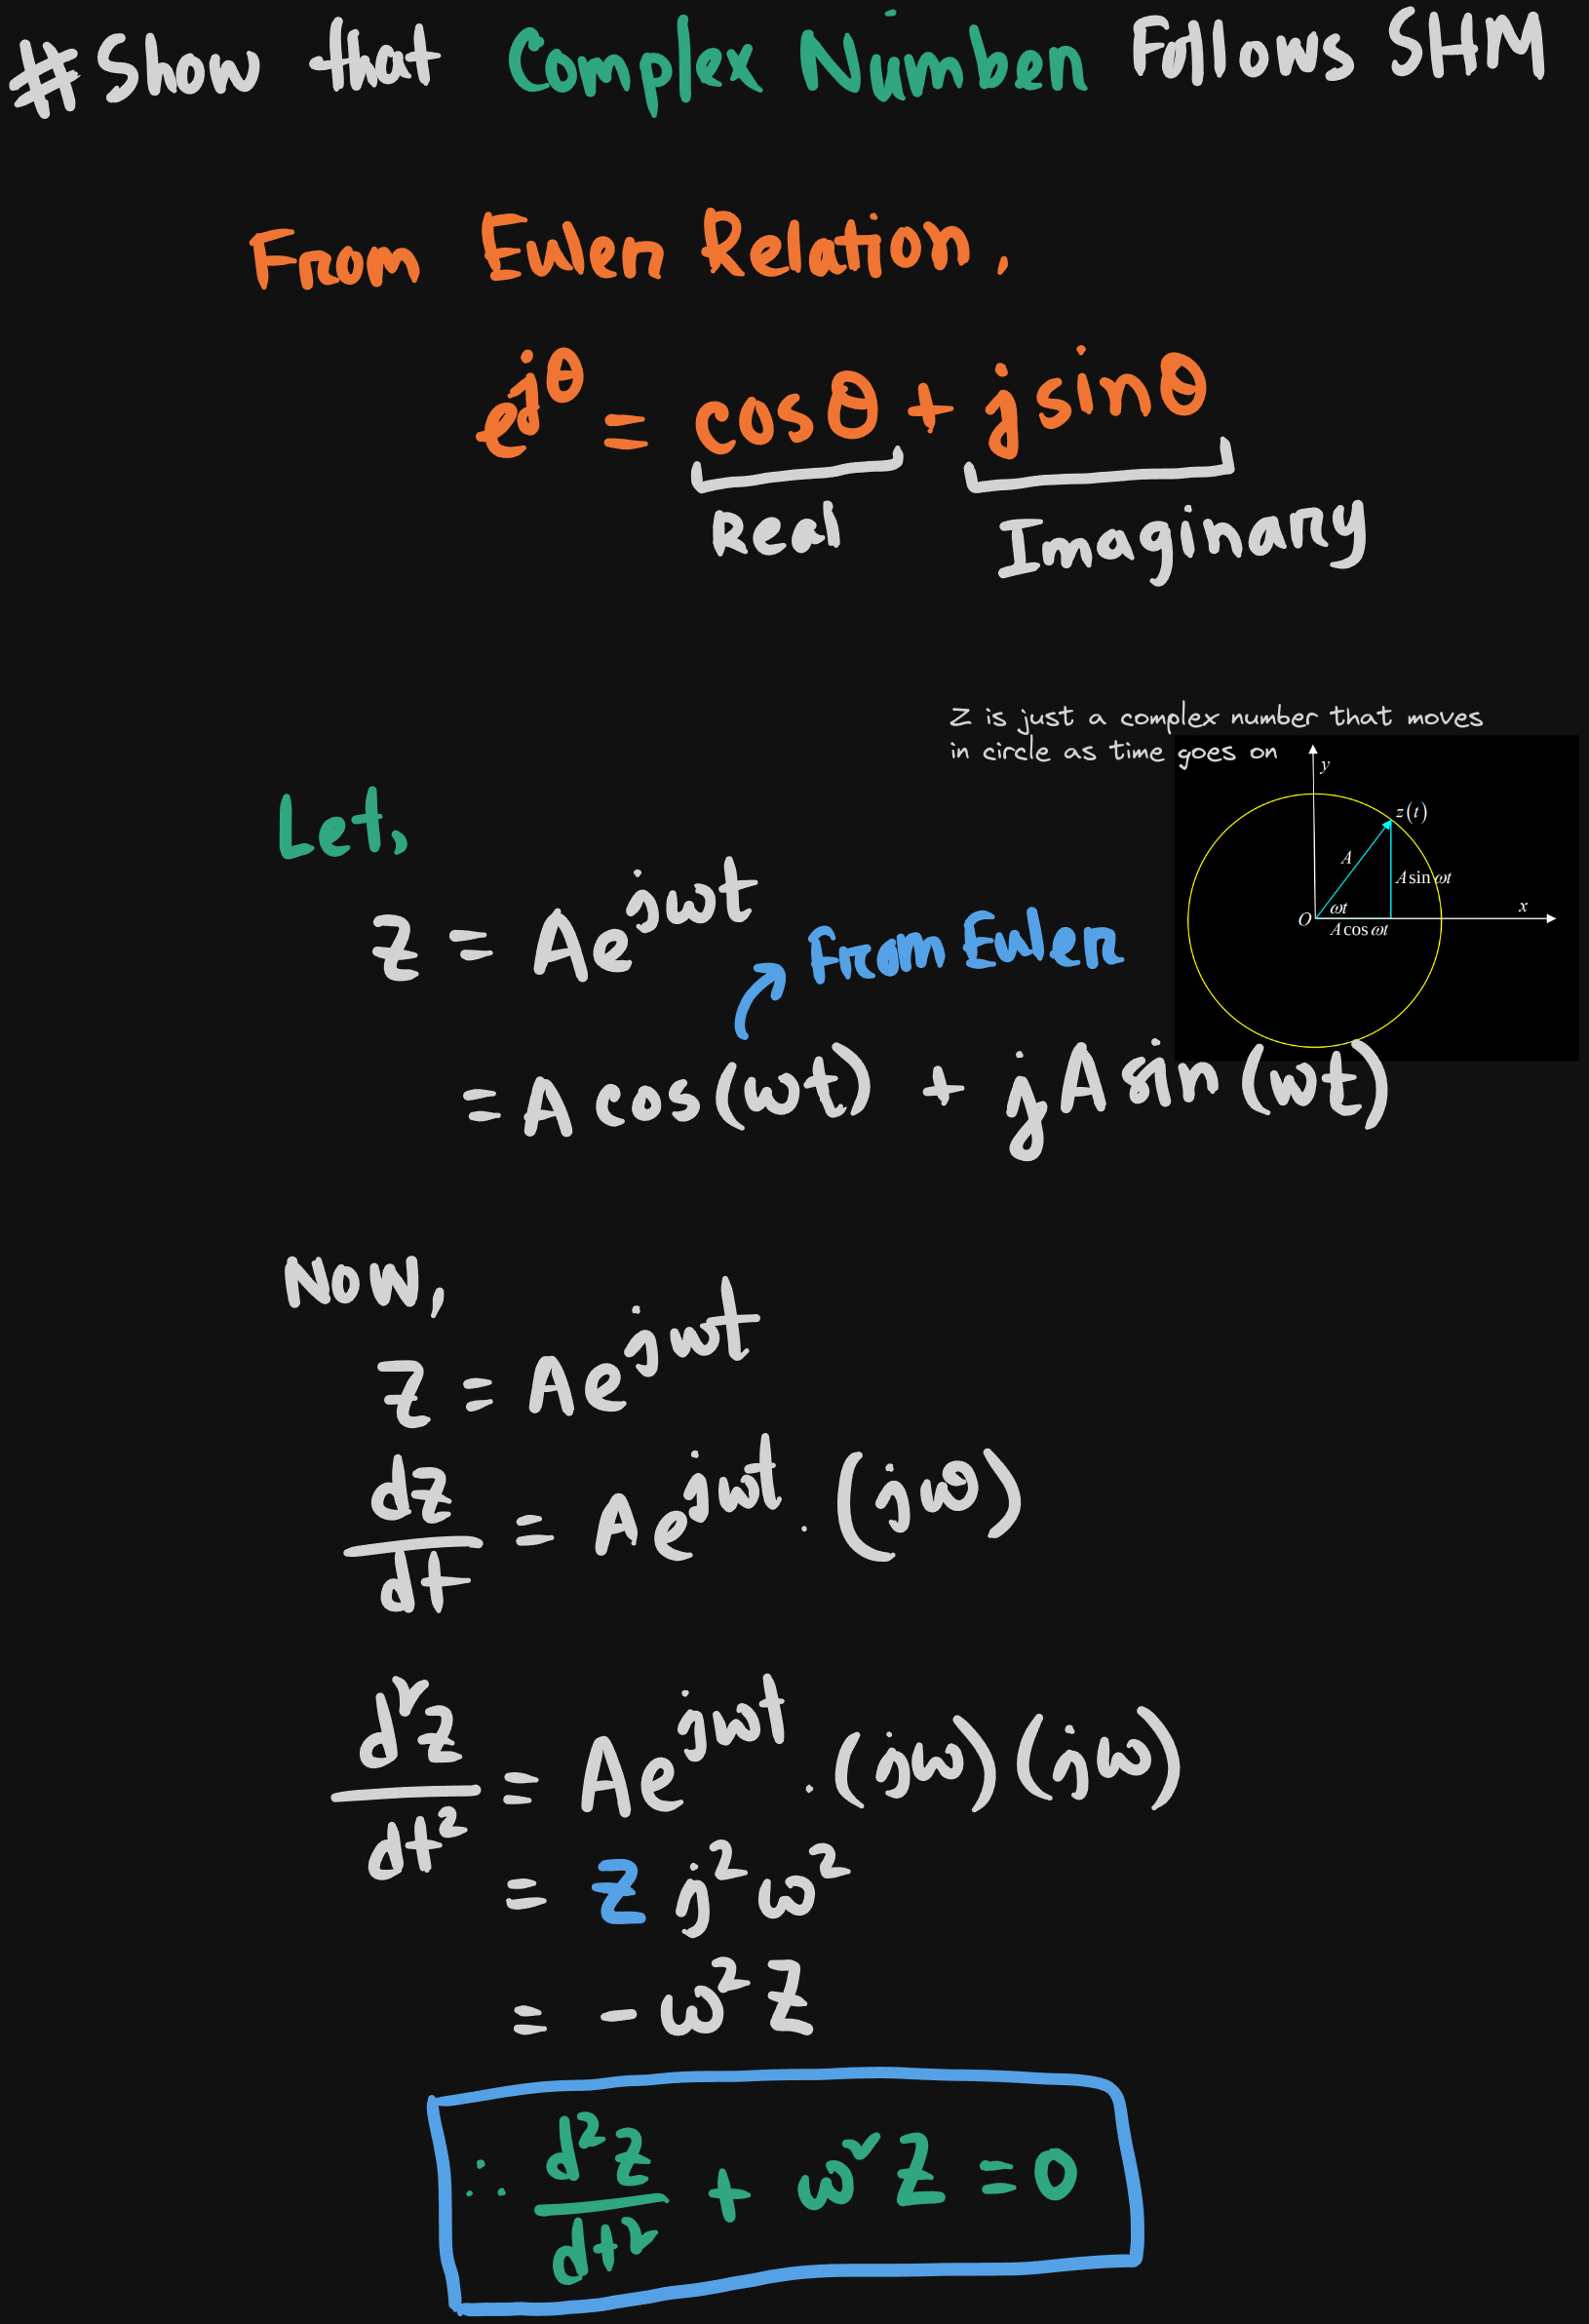 # Show that Complex Number Follows SHM
From Euler Relation,
e^jθ = cosθ + jsinθ
Real
Imaginary
Z is just a complex number that moves
in circle as time goes on
y
z(t)
A
A sin ωt
ωt
x
O
A cos ωt
Let,
Z = Ae^jωt
From Euler
= A cos(ωt) + jA sin(ωt)
Now,
Z = Ae^jωt
dZ/dt = Ae^jωt . (jω)
d²Z/dt² = Ae^jωt . (jω)(jω)
= Z j²ω²
= - ω²Z
∴ d²Z/dt² + ω²Z = 0